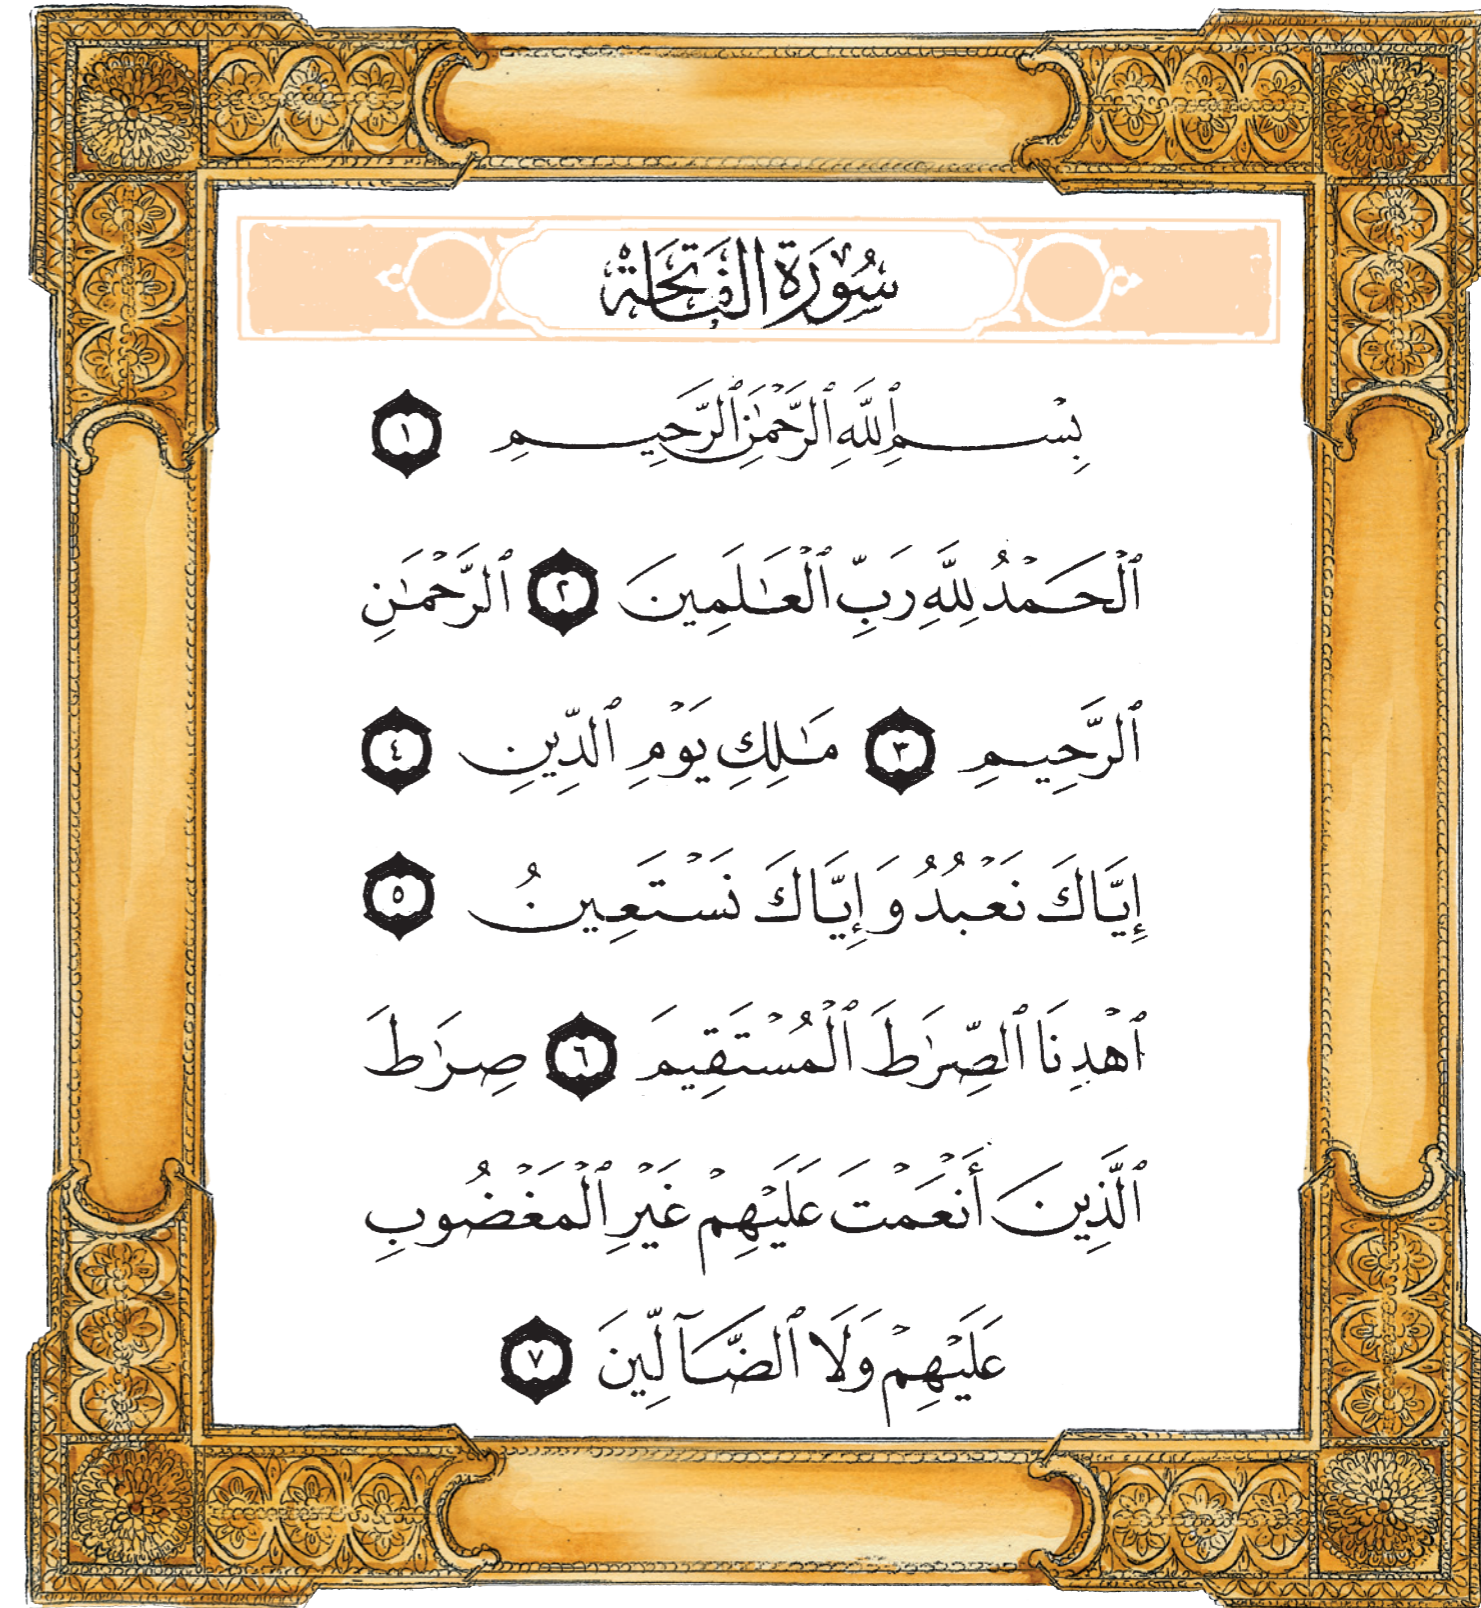 سُورَةُ الفَاتِحَةِ
بِسۡمِ ٱللَّهِ ٱلرَّحۡمَٰنِ ٱلرَّحِيمِ ١
ٱلۡحَمۡدُ لِلَّهِ رَبِّ ٱلۡعَٰلَمِينَ ٢ ٱلرَّحۡمَٰنِ
ٱلرَّحِيمِ ٣ مَٰلِكِ يَوۡمِ ٱلدِّينِ ٤
إِيَّاكَ نَعۡبُدُ وَإِيَّاكَ نَسۡتَعِينُ ٥
ٱهۡدِنَا ٱلصِّرَٰطَ ٱلۡمُسۡتَقِيمَ ٦ صِرَٰطَ
ٱلَّذِينَ أَنۡعَمۡتَ عَلَيۡهِمۡ غَيۡرِ ٱلۡمَغۡضُوبِ
عَلَيۡهِمۡ وَلَا ٱلضَّآلِّينَ ٧